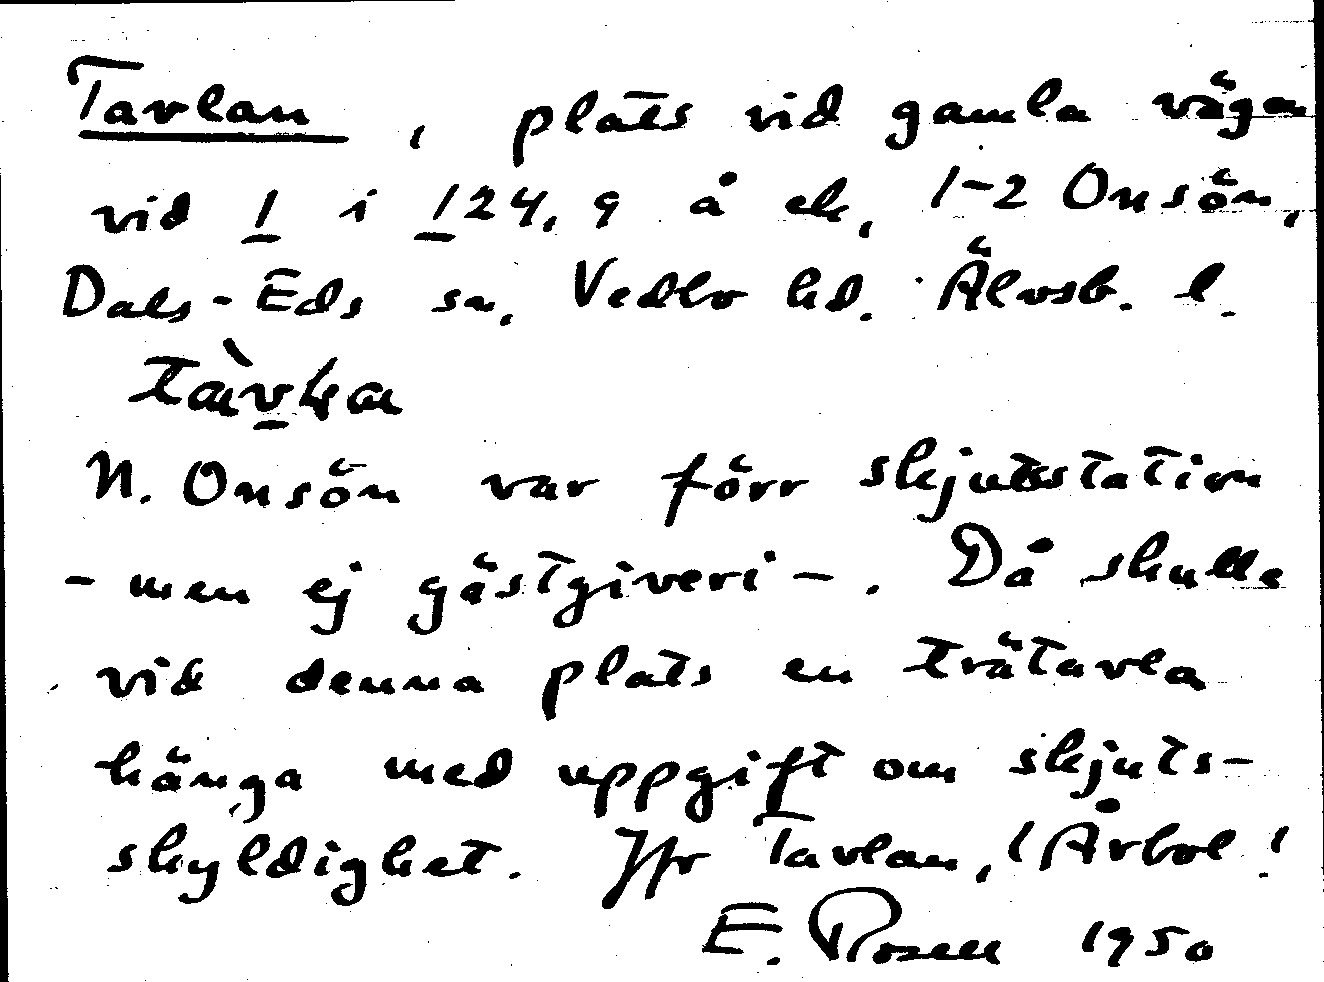 Tavlan, plats vid gamla vägen
vid 1 i 124,9 å ek, 1-2 Onsön,
Dals-Eds sn, Vedbo hd. Älvsb. l.
N. Onsön var förr skjutsstation
- men ej gästgiveri -. Då skulle
vid denna plats en trätavla
hänga med uppgift om skjuts-
skyldighet. Jfr Tavlan, 1 Årbol!
E. Rosell 1950